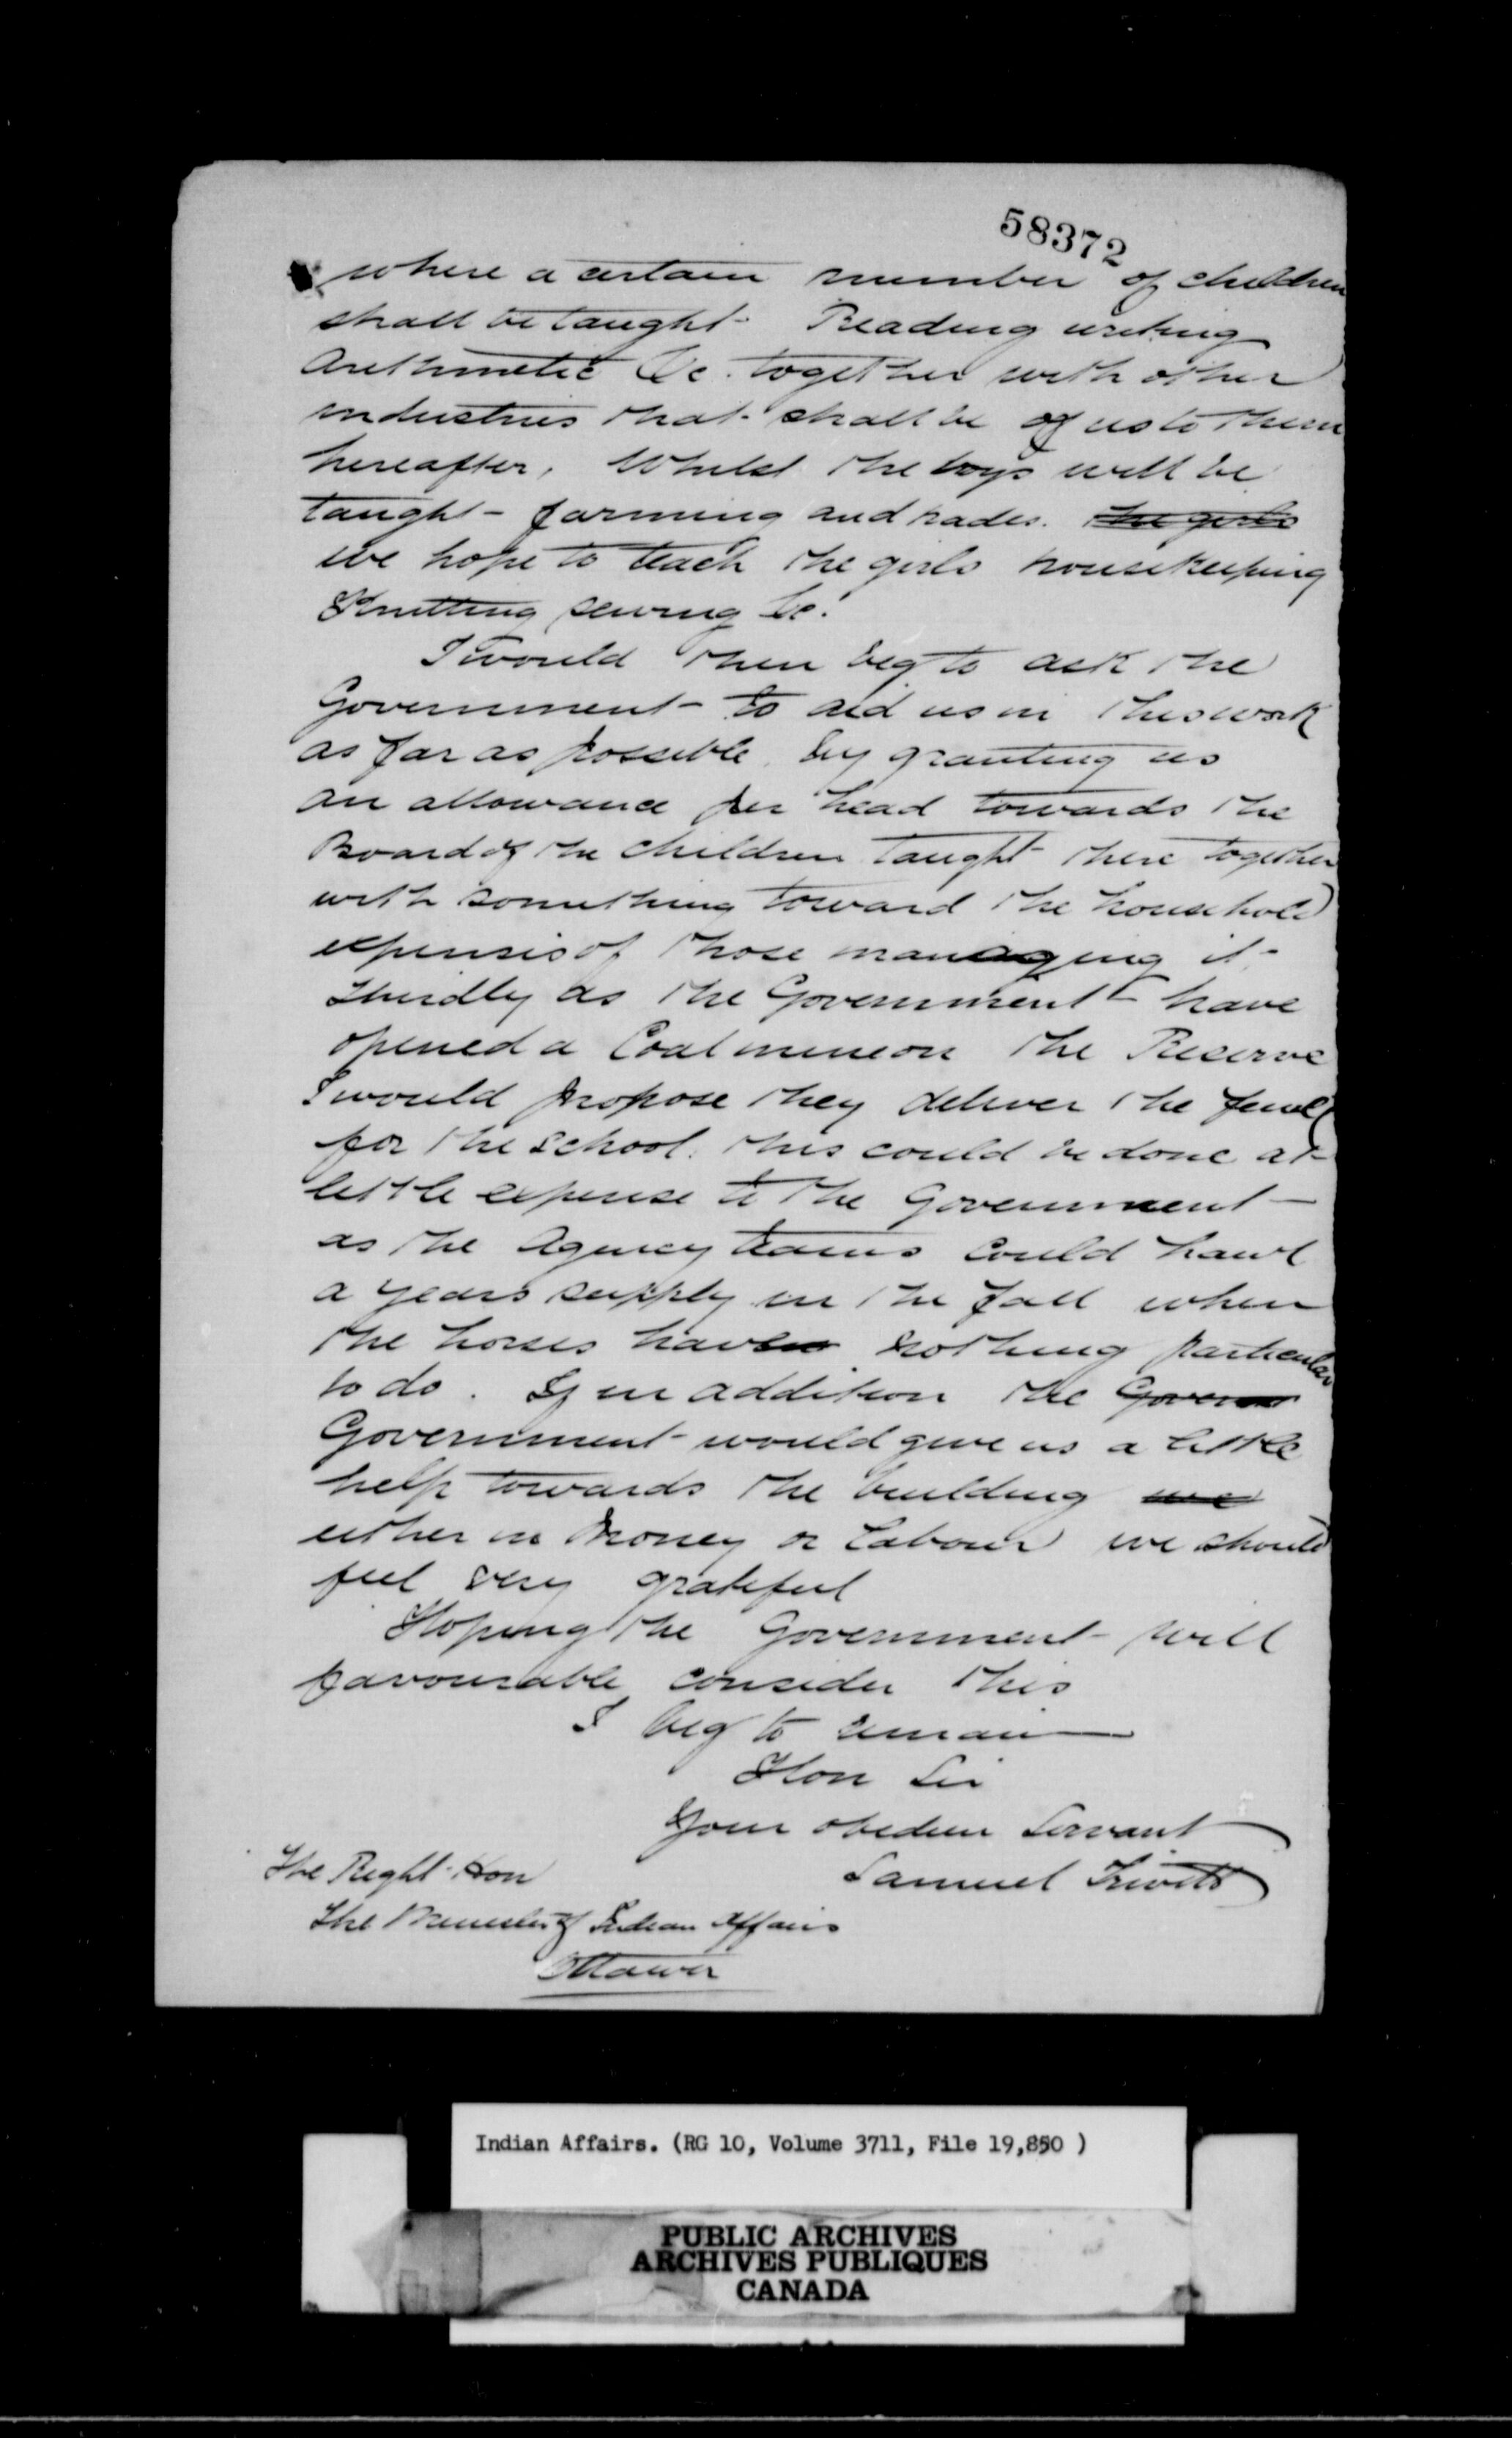 58372
where a certain number of children
shall be taught Reading writing
Arithmetic &c. together with other
industries that shall be of us to them
hereafter. Whilst the boys will be
taught farming and trades. the girls
we hope to teach the girls housekeeping
Knitting sewing &c.
I would then beg to ask the
Government to aid us in this work
as far as possible by granting us
an allowance per head towards the
Board of the children taught there together
with something toward the household
expenses of those managing it
Thirdly as the Government have
opened a Coal mine on the Reserve
I would propose they deliver the fuel
for the school. this could be done at
little expense to the Government
as the Agency teams could hawl
a years supply in the fall when
the horses have nothing particular
to do. If in addition the Governm
Government would give us a little
help towards the building we
either in money or Labour we should
feel very grateful
Hoping the Government will
favourable consider this
I beg to remain
Hon Sir
Your obedien Servant
Samuel Trivett
The Right Hon
The Minister of Indian Affairs
Ottawa
Indian Affairs. (RG 10, Volume 3711, File 19,850 )
PUBLIC ARCHIVES
ARCHIVES PUBLIQUES
CANADA